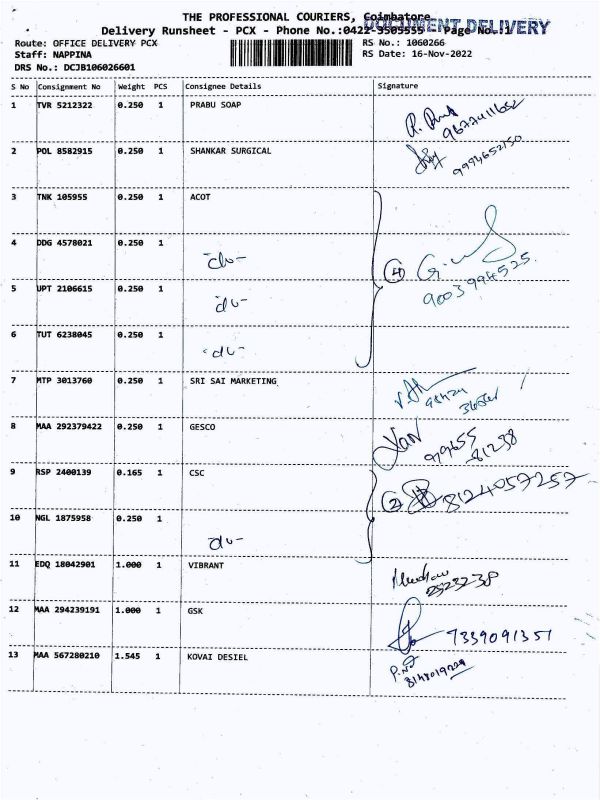 THE PROFESSIONAL COURIERS, Coimbatore
DOCUMENT DELIVERY
Delivery Runsheet - PCX - Phone No.:0422-3505555 - Page No.:1/
Route: OFFICE DELIVERY PCX
RS No.: 1060266
Staff: NAPPINA
RS Date: 16-Nov-2022
DRS No.: DCJB106026601
S No Consignment No Weight PCS Consignee Details Signature
1 TVR 5212322 0.250 1 PRABU SOAP
2 POL 8582915 0.250 1 SHANKAR SURGICAL
9994652150
3 TNK 105955 0.250 1 ACOT
4 DDG 4578021 0.250 1
-do-
4
9003994525
5 UPT 2106615 0.250 1
do-
6 TUT 6238045 0.250 1
-do-
7 MTP 3013760 0.250 1 SRI SAI MARKETING
8 MAA 292379422 0.250 1 GESCO
919655
81238
9 RSP 2400139 0.165 1 CSC
2 8124057257
10 NGL 1875958 0.250 1
do-
11 EDQ 18042901 1.000 1 VIBRANT
2523238
12 MAA 294239191 1.000 1 GSK
7339091351
13 MAA 567280210 1.545 1 KOVAI DESIEL